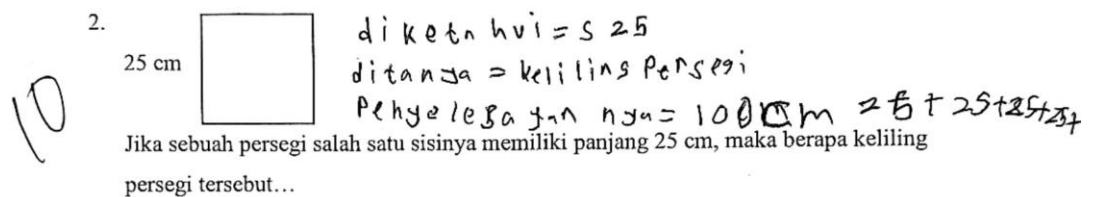 2.
diketahui = s 25
25 cm
ditanya = keliling Persegi
Penyelesayan nya = 100 cm = 25 + 25+25+25+
10
Jika sebuah persegi salah satu sisinya memiliki panjang 25 cm, maka berapa keliling
persegi tersebut…